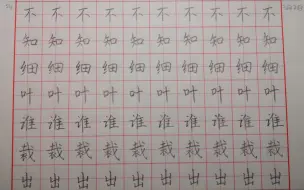 不 不 不 不 不 不 不 不 不 不
知 知 知 知 知 知 知 知 知 知
细 细 细 细 细 细 细 细 细 细
叶 叶 叶 叶 叶 叶 叶 叶 叶 叶
谁 谁 谁 谁 谁 谁 谁 谁 谁 谁
裁 裁 裁 裁 裁 裁 裁 裁 裁 裁
出 出 出 出 出 出 出 出 出 出